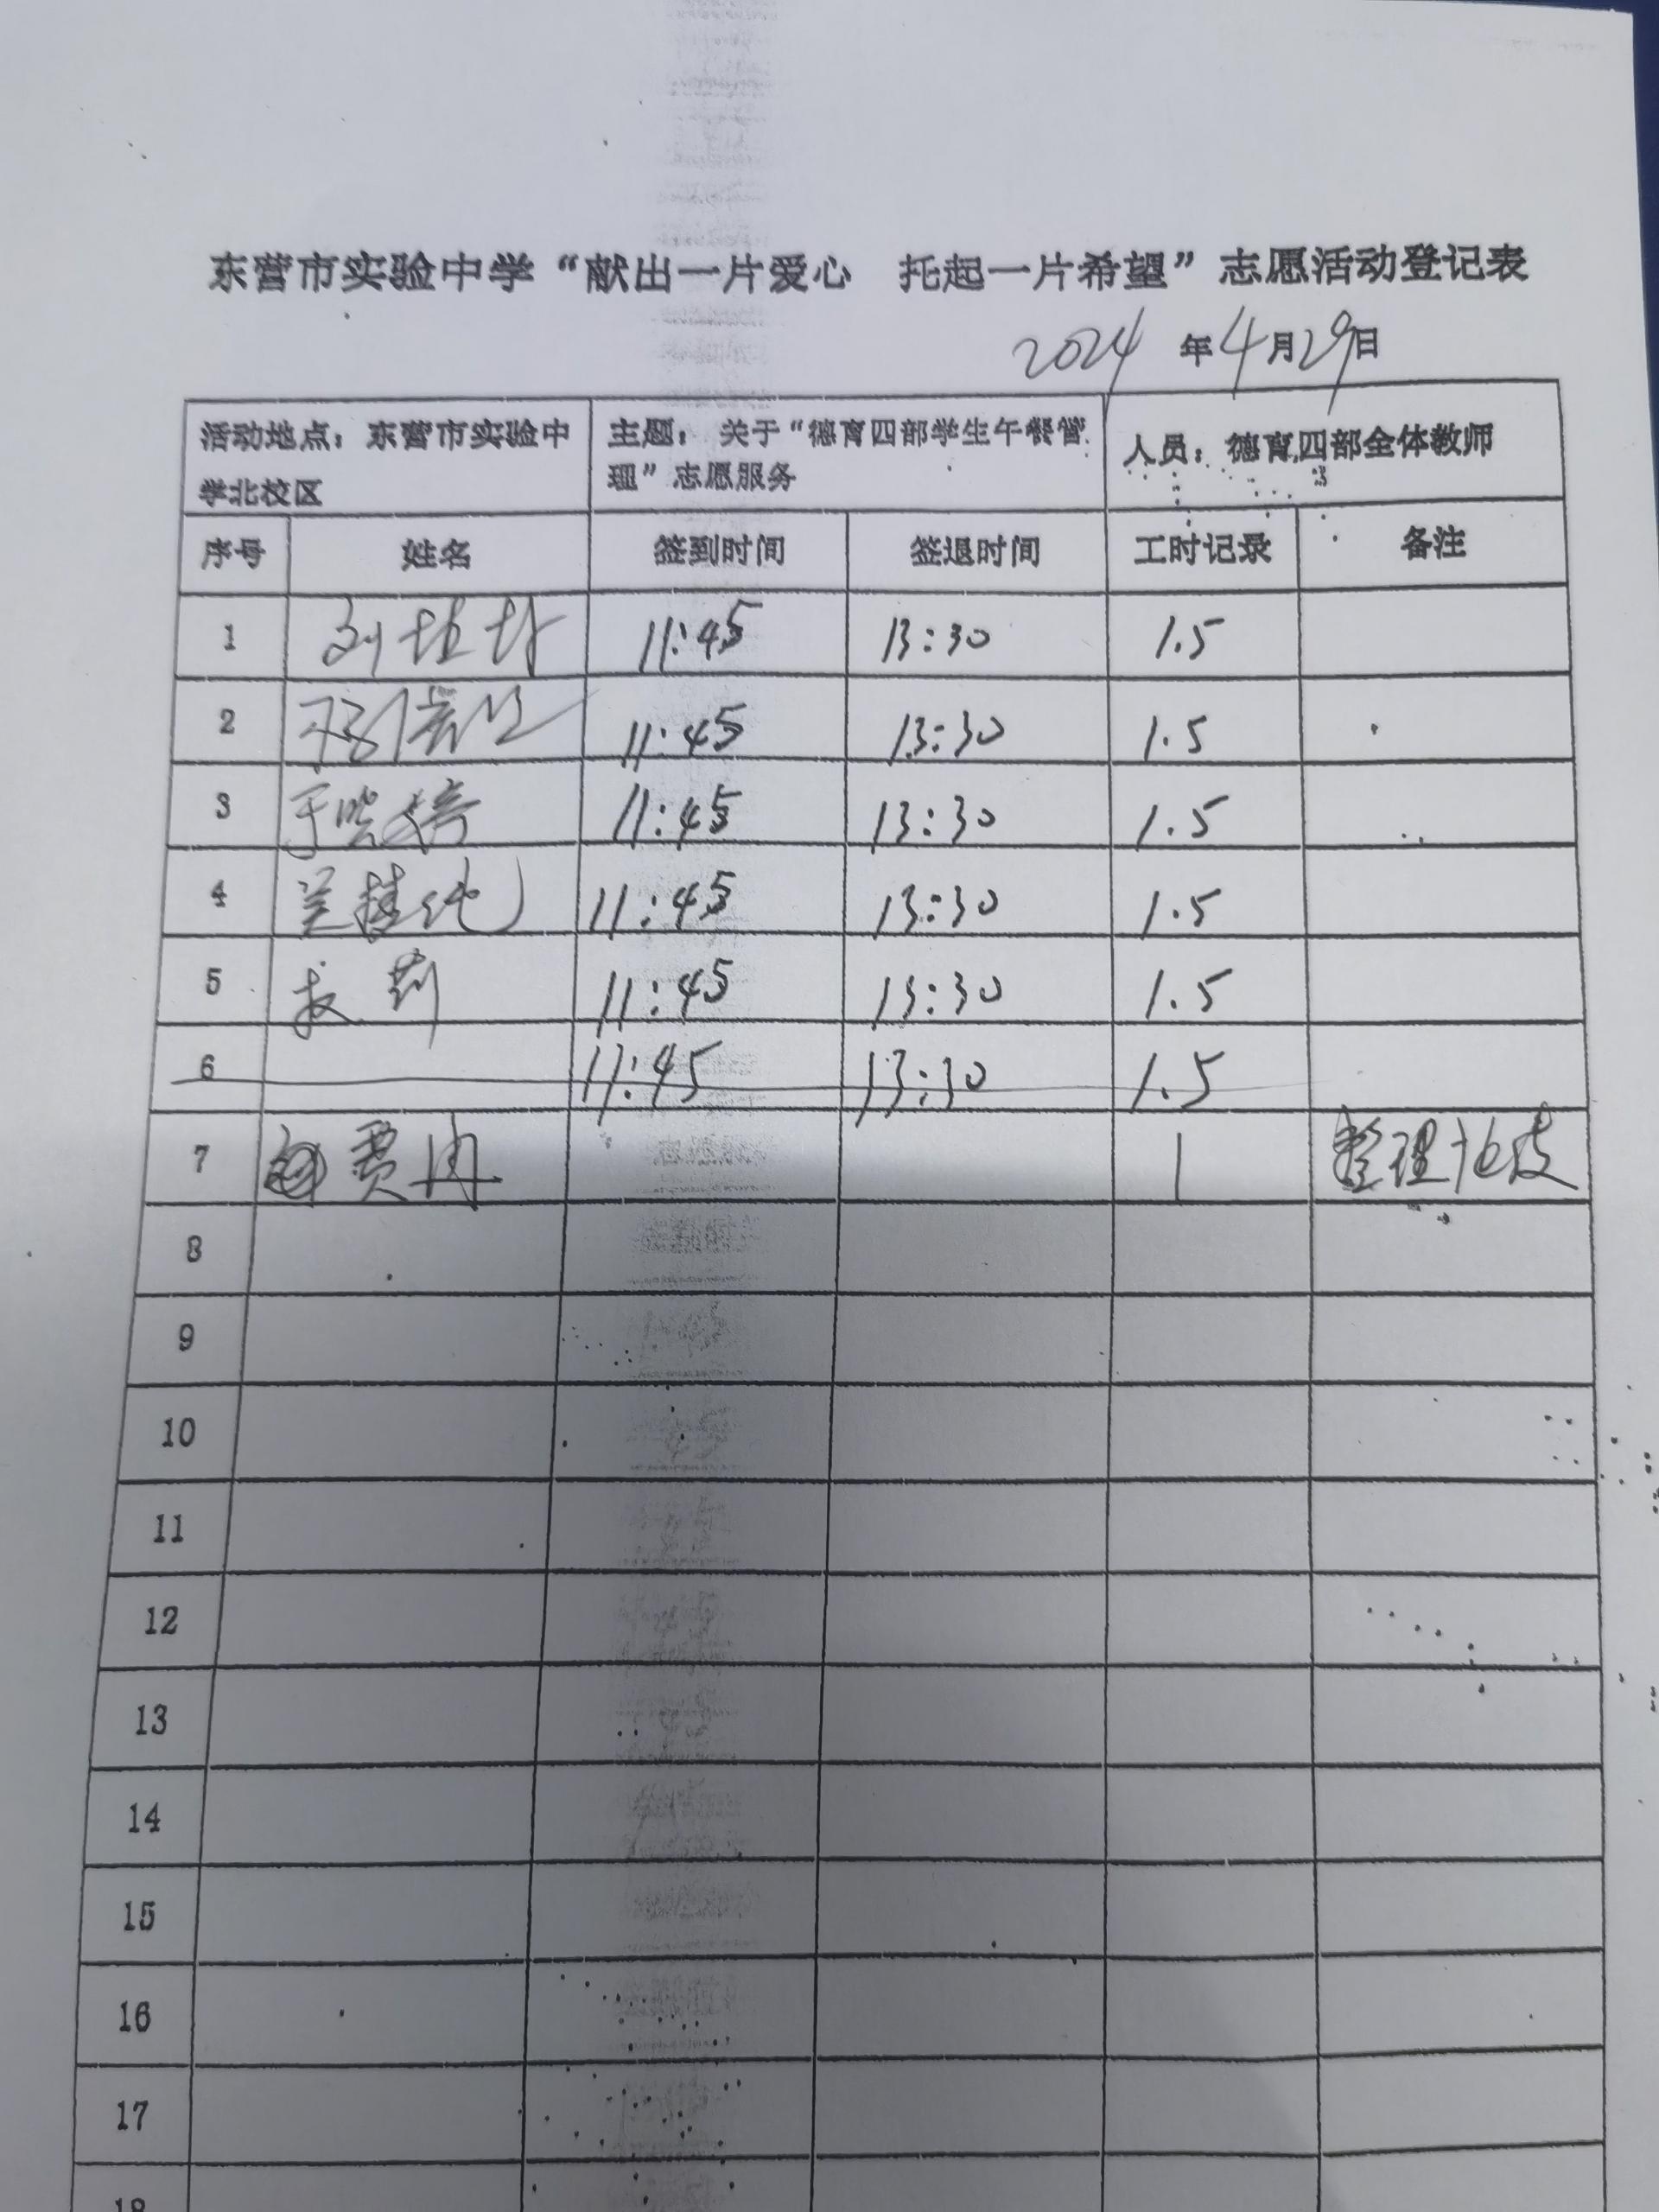 东营市实验中学“献出一片爱心 托起一片希望”志愿活动登记表
2024 年 4 月 29 日
活动地点：东营市实验中学北校区 主题：关于“德育四部学生午餐管理”志愿服务 人员：德育四部全体教师
序号 姓名 签到时间 签退时间 工时记录 备注
1 11:45 13:30 1.5
2 11:45 13:30 1.5
3 于 11:45 13:30 1.5
4 11:45 13:30 1.5
5 11:45 13:30 1.5
6 11:45 13:30 1.5
7 贾冉 1 整理
8
9
10
11
12
13
14
15
16
17
18